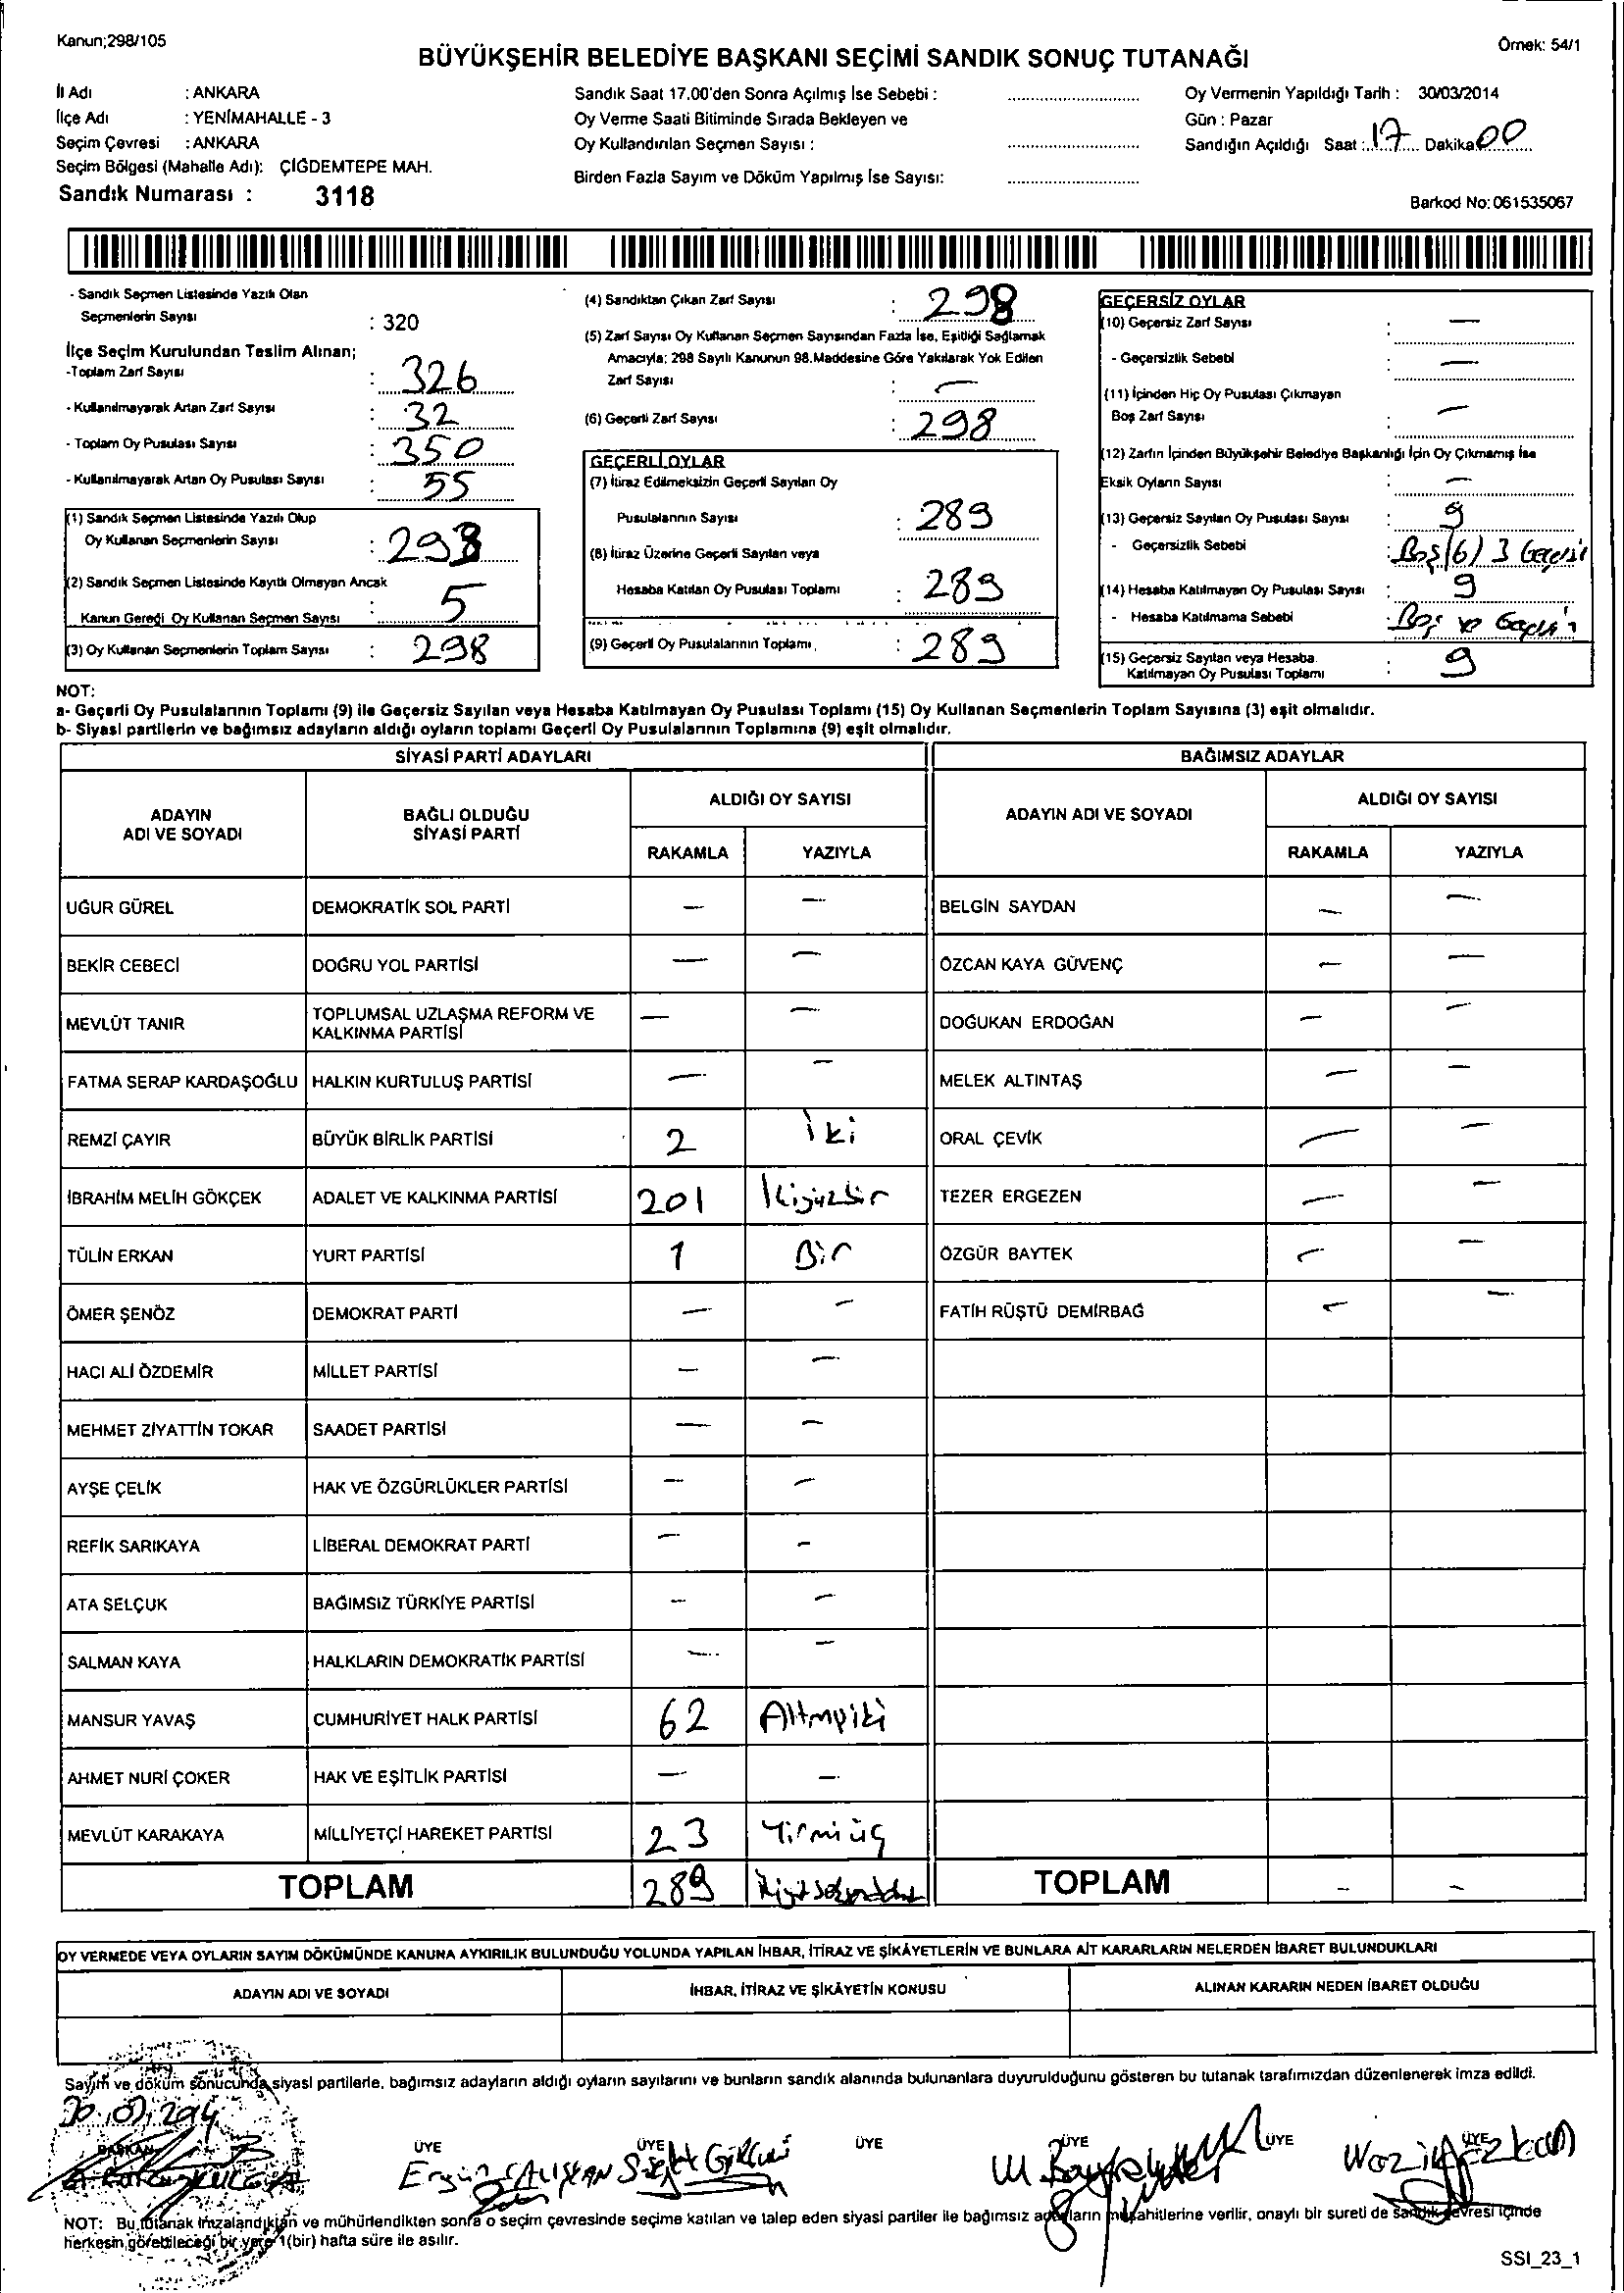 Kanun;298/105
Örnek: 54/1
BÜYÜKŞEHİR BELEDİYE BAŞKANI SEÇİMİ SANDIK SONUÇ TUTANAĞI
İl Adı : ANKARA
İlçe Adı : YENİMAHALLE - 3
Seçim Çevresi : ANKARA
Seçim Bölgesi (Mahalle Adı): ÇİĞDEMTEPE MAH.
Sandık Numarası : 3118
Sandık Saat 17.00'den Sonra Açılmış İse Sebebi :
Oy Verme Saati Bitiminde Sırada Bekleyen ve
Oy Kullandırılan Seçmen Sayısı :
Birden Fazla Sayım ve Döküm Yapılmış İse Sayısı:
Oy Vermenin Yapıldığı Tarih : 30/03/2014
Gün : Pazar
Sandığın Açıldığı Saat : 17 Dakika 00
Barkod No: 061535067
- Sandık Seçmen Listesinde Yazılı Olan
Seçmenlerin Sayısı : 320
İlçe Seçim Kurulundan Teslim Alınan;
-Toplam Zarf Sayısı : 326
- Kullanılmayarak Artan Zarf Sayısı : 32
- Toplam Oy Pusulası Sayısı : 350
- Kullanılmayarak Artan Oy Pusulası Sayısı : 55
(1) Sandık Seçmen Listesinde Yazılı Olup
Oy Kullanan Seçmenlerin Sayısı :
(2) Sandık Seçmen Listesinde Kayıtlı Olmayan Ancak
Kanun Gereği Oy Kullanan Seçmen Sayısı : 5
(3) Oy Kullanan Seçmenlerin Toplam Sayısı : 298
(4) Sandıktan Çıkan Zarf Sayısı : 298
(5) Zarf Sayısı Oy Kullanan Seçmen Sayısından Fazla İse, Eşitliği Sağlamak
Amacıyla; 298 Sayılı Kanunun 98.Maddesine Göre Yakılarak Yok Edilen
Zarf Sayısı : —
(6) Geçerli Zarf Sayısı : 298
GEÇERLİ OYLAR
(7) İtiraz Edilmeksizin Geçerli Sayılan Oy
Pusulalarının Sayısı : 289
(8) İtiraz Üzerine Geçerli Sayılan veya
Hesaba Katılan Oy Pusulası Toplamı : 289
(9) Geçerli Oy Pusulalarının Toplamı : 289
GEÇERSİZ OYLAR
(10) Geçersiz Zarf Sayısı : —
- Geçersizlik Sebebi : —
(11) İçinden Hiç Oy Pusulası Çıkmayan
Boş Zarf Sayısı : —
(12) Zarfın İçinden Büyükşehir Belediye Başkanlığı İçin Oy Çıkmamış İse
Eksik Oyların Sayısı : —
(13) Geçersiz Sayılan Oy Pusulası Sayısı : 9
- Geçersizlik Sebebi : Boş (6) 3 Geçersiz
(14) Hesaba Katılmayan Oy Pusulası Sayısı : 9
- Hesaba Katılmama Sebebi : Boş ve
(15) Geçersiz Sayılan veya Hesaba
Katılmayan Oy Pusulası Toplamı : 9
NOT:
a- Geçerli Oy Pusulalarının Toplamı (9) ile Geçersiz Sayılan veya Hesaba Katılmayan Oy Pusulası Toplamı (15) Oy Kullanan Seçmenlerin Toplam Sayısına (3) eşit olmalıdır.
b- Siyasi partilerin ve bağımsız adayların aldığı oyların toplamı Geçerli Oy Pusulalarının Toplamına (9) eşit olmalıdır.
SİYASİ PARTİ ADAYLARI BAĞIMSIZ ADAYLAR
ADAYIN ADI VE SOYADI BAĞLI OLDUĞU SİYASİ PARTİ ALDIĞI OY SAYISI ADAYIN ADI VE SOYADI ALDIĞI OY SAYISI
RAKAMLA YAZIYLA RAKAMLA YAZIYLA
UĞUR GÜREL DEMOKRATİK SOL PARTİ — — BELGİN SAYDAN — —
BEKİR CEBECİ DOĞRU YOL PARTİSİ — — ÖZCAN KAYA GÜVENÇ — —
MEVLÜT TANIR TOPLUMSAL UZLAŞMA REFORM VE KALKINMA PARTİSİ — — DOĞUKAN ERDOĞAN — —
FATMA SERAP KARDAŞOĞLU HALKIN KURTULUŞ PARTİSİ — — MELEK ALTINTAŞ — —
REMZİ ÇAYIR BÜYÜK BİRLİK PARTİSİ 2 İki ORAL ÇEVİK — —
İBRAHİM MELİH GÖKÇEK ADALET VE KALKINMA PARTİSİ 201 İkiyüzbir TEZER ERGEZEN — —
TÜLİN ERKAN YURT PARTİSİ 1 Bir ÖZGÜR BAYTEK — —
ÖMER ŞENÖZ DEMOKRAT PARTİ — — FATİH RÜŞTÜ DEMİRBAĞ — —
HACI ALİ ÖZDEMİR MİLLET PARTİSİ — —
MEHMET ZİYATTİN TOKAR SAADET PARTİSİ — —
AYŞE ÇELİK HAK VE ÖZGÜRLÜKLER PARTİSİ — —
REFİK SARIKAYA LİBERAL DEMOKRAT PARTİ — —
ATA SELÇUK BAĞIMSIZ TÜRKİYE PARTİSİ — —
SALMAN KAYA HALKLARIN DEMOKRATİK PARTİSİ — —
MANSUR YAVAŞ CUMHURİYET HALK PARTİSİ 62 Altmışiki
AHMET NURİ ÇOKER HAK VE EŞİTLİK PARTİSİ — —
MEVLÜT KARAKAYA MİLLİYETÇİ HAREKET PARTİSİ 23 Yirmiüç
TOPLAM 289 TOPLAM — —
OY VERMEDE VEYA OYLARIN SAYIM DÖKÜMÜNDE KANUNA AYKIRILIK BULUNDUĞU YOLUNDA YAPILAN İHBAR, İTİRAZ VE ŞİKÂYETLERİN VE BUNLARA AİT KARARLARIN NELERDEN İBARET BULUNDUKLARI
ADAYIN ADI VE SOYADI İHBAR, İTİRAZ VE ŞİKÂYETİN KONUSU ALINAN KARARIN NEDEN İBARET OLDUĞU
Sayım ve döküm sonucunda siyasi partilerle, bağımsız adayların aldığı oyların sayılarını ve bunların sandık alanında bulunanlara duyurulduğunu gösteren bu tutanak tarafımızdan düzenlenerek imza edildi.
BAŞKAN ÜYE ÜYE ÜYE ÜYE ÜYE ÜYE
Ergün ÇALIŞKAN
NOT: Bu tutanak imzalandıktan ve mühürlendikten sonra o seçim çevresinde seçime katılan ve talep eden siyasi partiler ile bağımsız adayların müşahitlerine verilir, onaylı bir sureti de sandık çevresi içinde
herkesin görebileceği bir yere 1(bir) hafta süre ile asılır.
SSI_23_1